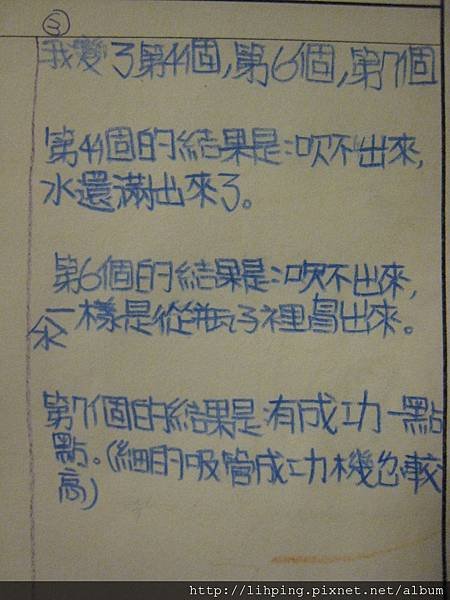 ③
我變了第4個,第6個,第7個
第4個的結果是:吹不出來,
水還滿出來了。
第6個的結果是:吹不出來,
水一樣是從瓶子裡冒出來。
第7個的結果是:有成功一點
點。(細的吸管成功機包較
高)
http://lihping.pixnet.net/album